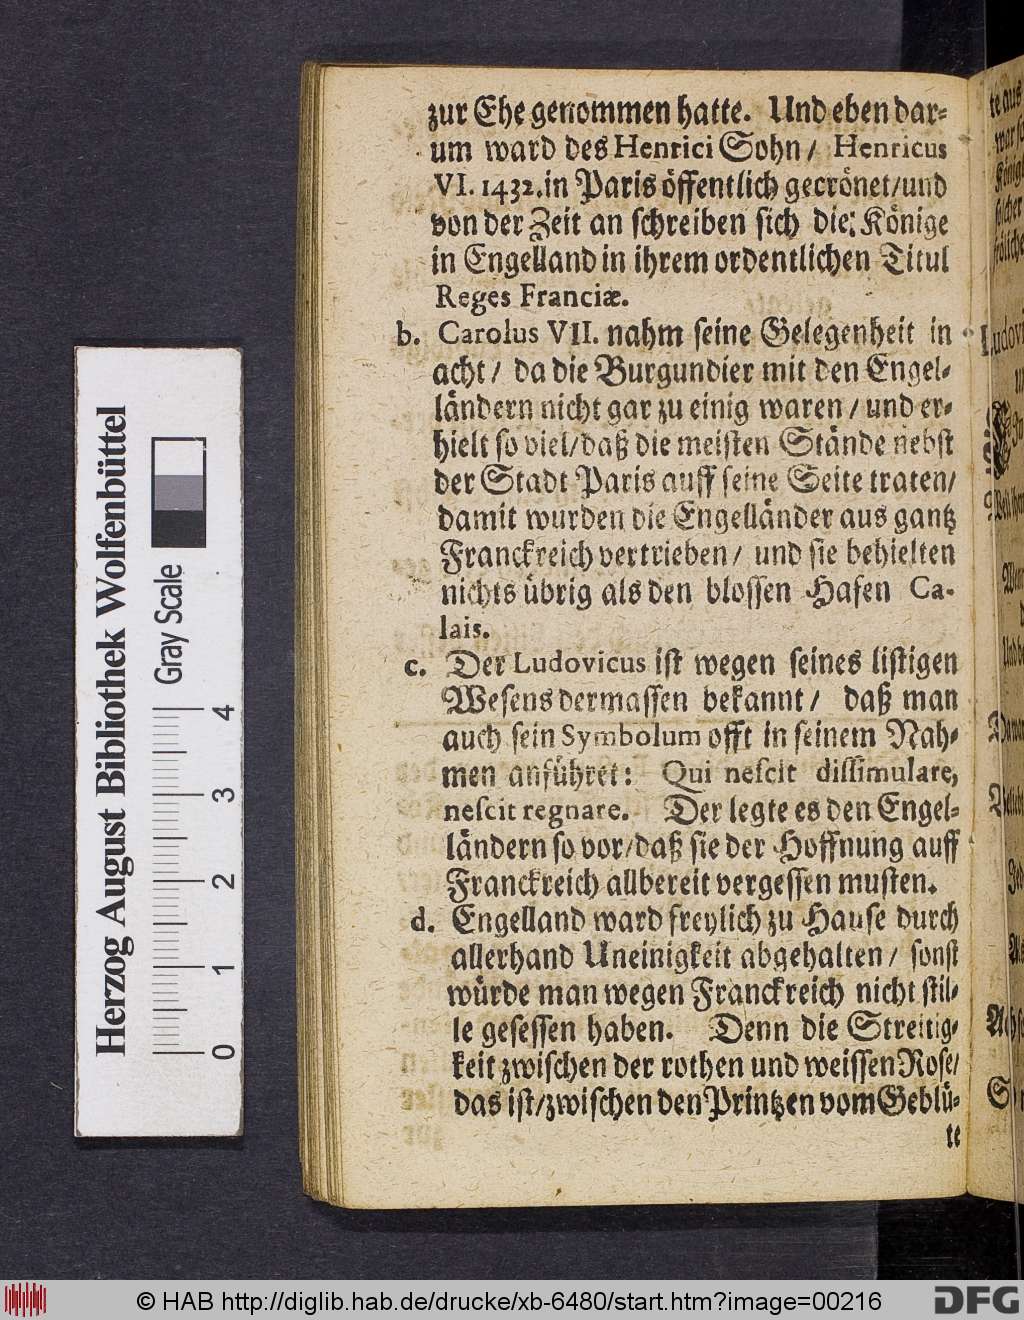 zur Ehe genommen hatte. Und eben dar-
um ward des Henrici Sohn/ Henricus
VI. 1432. in Paris öffentlich gecrönet/und
von der Zeit an schreiben sich die Könige
in Engelland in ihrem ordentlichen Titul
Reges Franciæ.
b. Carolus VII. nahm seine Gelegenheit in
acht/ da die Burgundier mit den Engel-
ländern nicht gar zu einig waren/ und er-
hielt so viel/daß die meisten Stände nebst
der Stadt Paris auff seine Seite traten/
damit wurden die Engelländer aus gantz
Franckreich vertrieben/ und sie behielten
nichts übrig als den blossen Hafen Ca-
lais.
c. Der Ludovicus ist wegen seines listigen
Wesens dermassen bekannt/ daß man
auch sein Symbolum offt in seinem Nah-
men anführet: Qui neſcit diſſimulare,
neſcit regnare. Der legte es den Engel-
ländern so vor/daß sie der Hoffnung auff
Franckreich allbereit vergessen musten.
d. Engelland ward freylich zu Hause durch
allerhand Uneinigkeit abgehalten/ sonst
würde man wegen Franckreich nicht stil-
le gesessen haben. Denn die Streitig-
keit zwischen der rothen und weissen Rose/
das ist/zwischen den Printzen vom Geblü-
te
Herzog August Bibliothek Wolfenbüttel
Gray Scale
0 1 2 3 4
© HAB http://diglib.hab.de/drucke/xb-6480/start.htm?image=00216
DFG